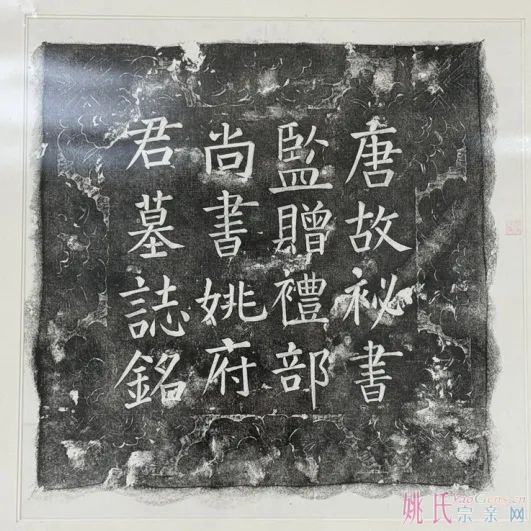 唐故祕書
監贈禮部
尚書姚府
君墓誌銘
姚氏宗亲网
YaoGens.cn